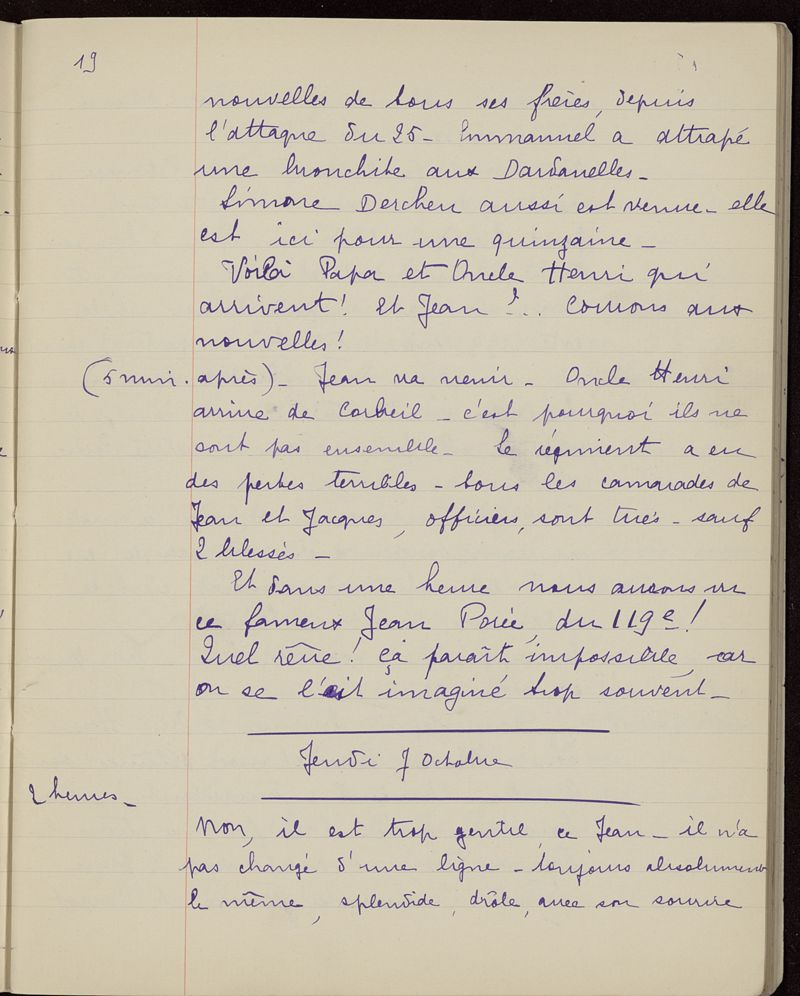 19
nouvelles de tous ses frères, depuis
l'attaque du 25 - Emmanuel a attrapé
une bronchite aux Dardanelles -
Simone Dercheu aussi est venue - elle
est ici pour une quinzaine -
Voilà Papa et Oncle Henri qui
arrivent ! Et Jean ?... Courons aux
nouvelles !
(5 min. après) - Jean va venir - Oncle Henri
arrive de Corbeil - c'est pourquoi ils ne
sont pas ensemble - Le régiment a eu
des pertes terribles - tous les camarades de
Jean et Jacques, officiers, sont tués - sauf
2 blessés -
Et dans une heure nous aurons vu
ce fameux Jean Porée, du 119e !
Quel rêve ! ça paraît impossible, car
on se l'est imaginé trop souvent -
Jeudi 7 Octobre
2 heures -
Non, il est trop gentil, ce Jean - il n'a
pas changé d'une ligne - toujours absolument
le même, splendide, drôle, avec son sourire